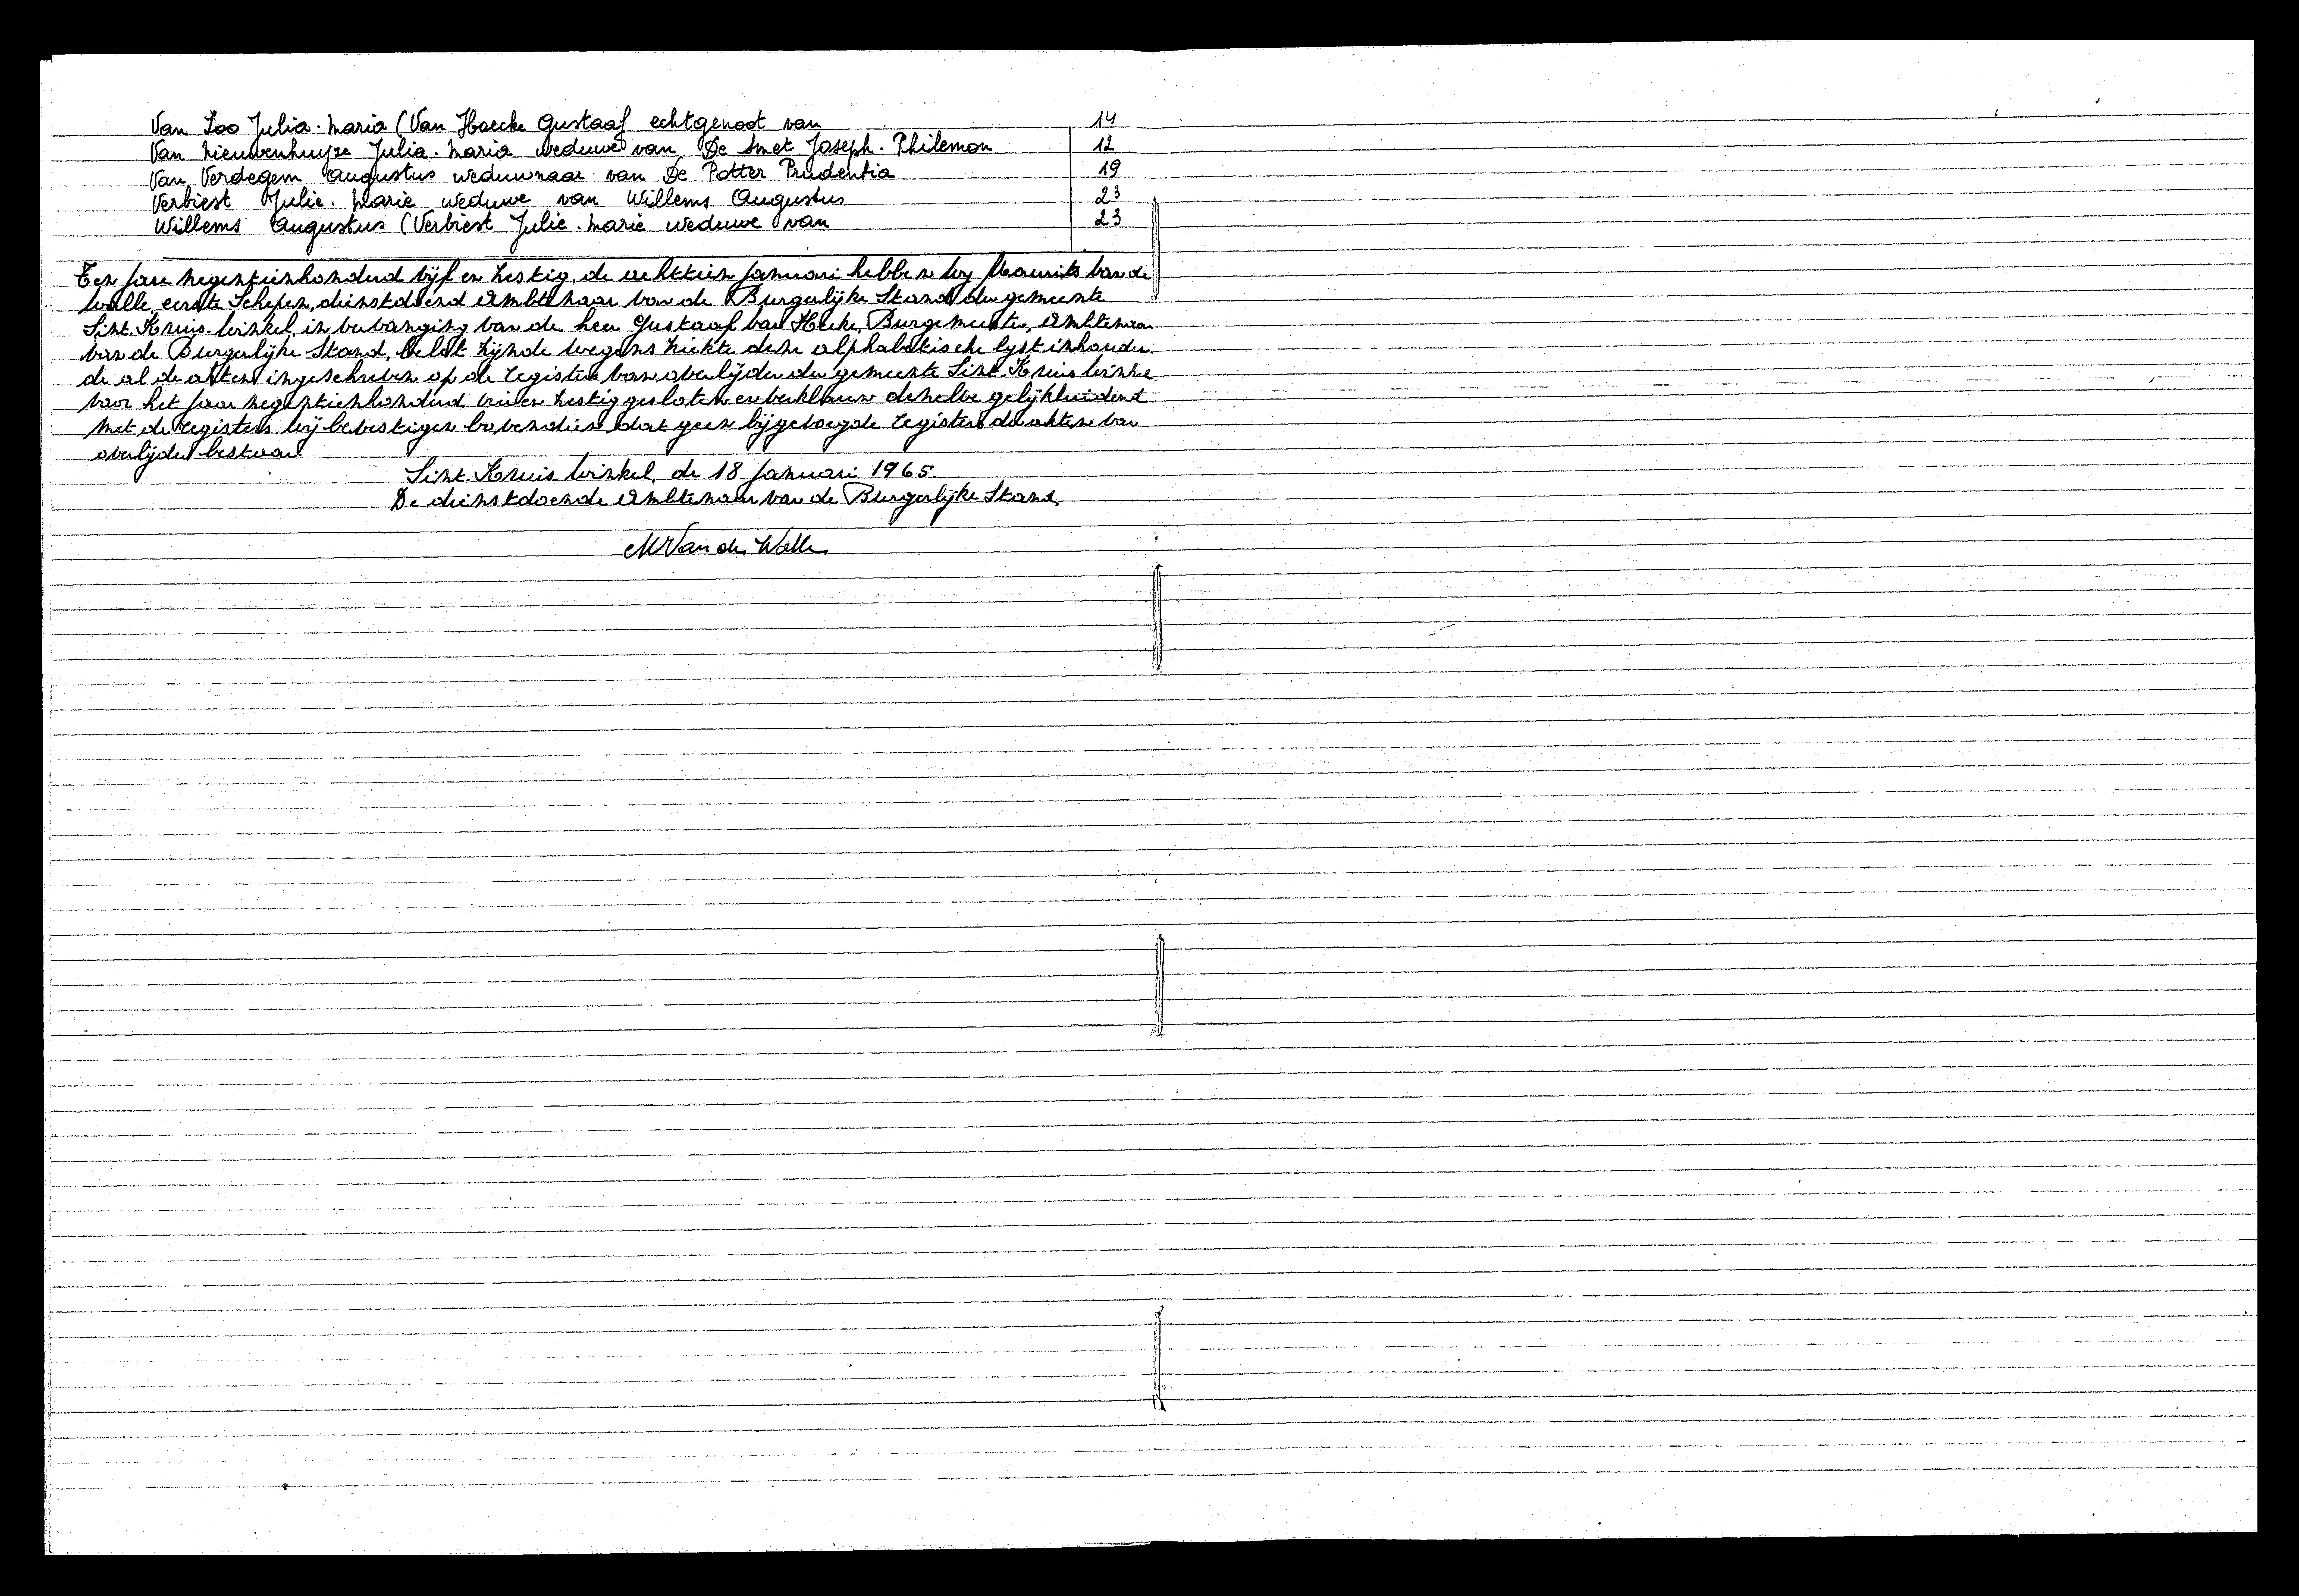 Van Loo Julia-Maria (Van Hoecke Gustaaf echtgenoot van 14
Van Nieuwenhuyze Julia-Maria weduwe van De Smet Joseph-Philemon 12
Van Verdegem Augustus weduwnaar van De Potter Prudentia 19
Verbiest Julie-Marie weduwe van Willems Augustus 23
Willems Augustus (Verbiest Julie-Marie weduwe van 23
Ten jare negentienhonderd vijf en zestig, de achttien januari hebben wy Maurits Van de
Walle, eerste Schepen, dienstdoend Ambtenaar van de Burgerlijke Stand der gemeente
Sint-Kruis-Winkel, in vervanging van de heer Gustaaf Van Hecke, Burgemeester, Ambtenaar
van de Burgerlijke Stand, belet zijnde wegens ziekte deze alphabetische lyst inhouden-
de al de akten ingeschreven op de registers van overlijden der gemeente Sint-Kruis-Winkel
voor het jaar negentienhonderd vier en zestig gesloten en verklaren dezelve gelijkluidend
met de registers. Wij bevestigen bovendien dat geen bijgevoegde registers der akten van
overlijden bestaan.
Sint-Kruis-Winkel, de 18 januari 1965.
De dienstdoende Ambtenaar van de Burgerlijke Stand,
M Van de Walle